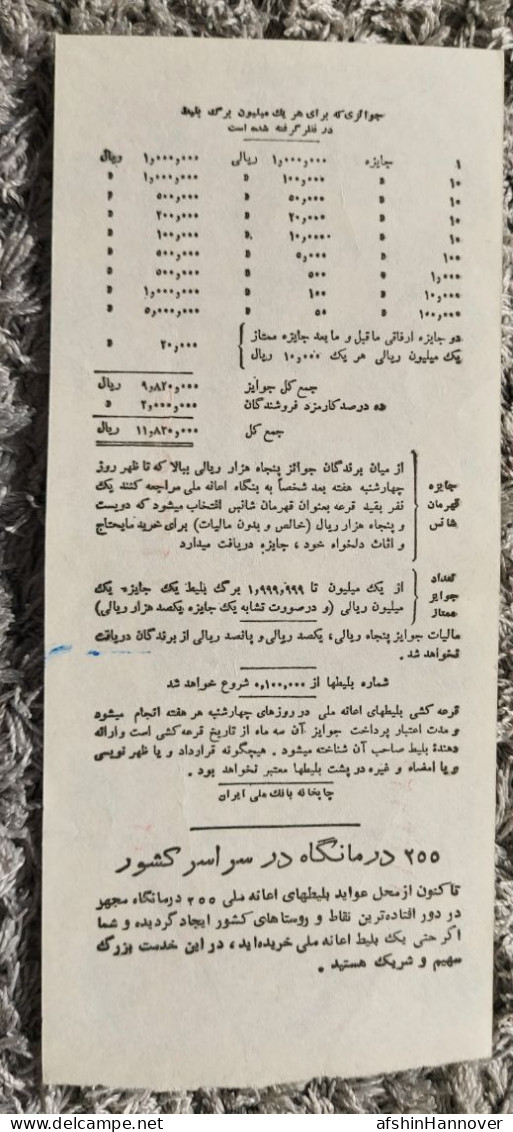 جوائزی که برای هر یک میلیون برگ بلیط
در نظر گرفته شده است
۱ جایزه ۱٫۰۰۰٫۰۰۰ ریالی ۱٫۰۰۰٫۰۰۰ ریال
۱۰ » ۱۰۰٫۰۰۰ » ۱٫۰۰۰٫۰۰۰ »
۱۰ » ۵۰٫۰۰۰ » ۵۰۰٫۰۰۰ »
۱۰ » ۲۰٫۰۰۰ » ۲۰۰٫۰۰۰ »
۱۰ » ۱۰٫۰۰۰ » ۱۰۰٫۰۰۰ »
۱۰۰ » ۵٫۰۰۰ » ۵۰۰٫۰۰۰ »
۱٫۰۰۰ » ۵۰۰ » ۵۰۰٫۰۰۰ »
۱۰٫۰۰۰ » ۱۰۰ » ۱٫۰۰۰٫۰۰۰ »
۱۰۰٫۰۰۰ » ۵۰ » ۵٫۰۰۰٫۰۰۰ »
دو جایزه ارفاقی ماقبل و ما بعد جایزه ممتاز
یک میلیون ریالی هر یک ۱۰٫۰۰۰ ریال ۲۰٫۰۰۰ »
جمع کل جوایز ۹٫۸۲۰٫۰۰۰ ریال
ده درصد کارمزد فروشندگان ۲٫۰۰۰٫۰۰۰ »
جمع کل ۱۱٫۸۲۰٫۰۰۰ ریال
جایزه قهرمان شانس
از میان برندگان جوائز پنجاه هزار ریالی ببالا که تا ظهر روز
چهارشنبه هفته بعد شخصاً به بنگاه اعانه ملی مراجعه کنند یک
نفر بقید قرعه بعنوان قهرمان شانس انتخاب میشود که دویست
و پنجاه هزار ریال (خالص و بدون مالیات) برای خرید مایحتاج
و اثاث دلخواه خود ، جایزه دریافت میدارد
تعداد جوایز ممتاز
از یک میلیون تا ۱٫۹۹۹٫۹۹۹ برگ بلیط یک جایزه یک
میلیون ریالی (و درصورت تشابه یک جایزه یکصد هزار ریالی)
مالیات جوایز پنجاه ریالی، یکصد ریالی و پانصد ریالی از برندگان دریافت
نخواهد شد .
شماره بلیطها از ۰٫۱۰۰٫۰۰۰ شروع خواهد شد
قرعه کشی بلیطهای اعانه ملی در روزهای چهارشنبه هر هفته انجام میشود
و مدت اعتبار پرداخت جوایز آن سه ماه از تاریخ قرعه کشی است و ارائه
دهندهٔ بلیط صاحب آن شناخته میشود . هیچگونه قرارداد و یا ظهر نویسی
و یا امضاء و غیره در پشت بلیطها معتبر نخواهد بود .
چاپخانه بانک ملی ایران
۲۵۵ درمانگاه در سراسر کشور
تا کنون از محل عواید بلیطهای اعانه ملی ۲۵۵ درمانگاه مجهز
در دور افتاده‌ترین نقاط و روستاهای کشور ایجاد گردیده و شما
اگر حتی یک بلیط اعانه ملی خریده‌اید، در این خدمت بزرگ
سهیم و شریک هستید .
afshinHannover